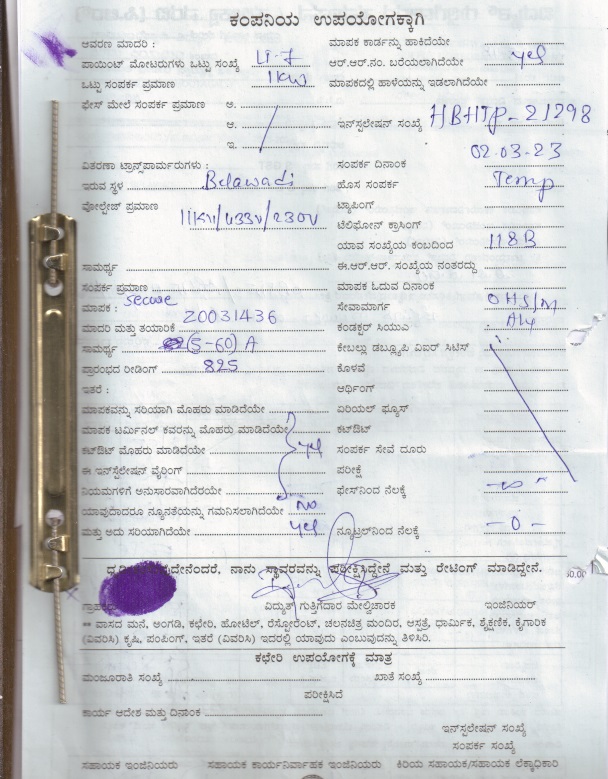 ಕಂಪನಿಯ ಉಪಯೋಗಕ್ಕಾಗಿ
ಆವರಣ ಮಾದರಿ :
ಪಾಯಿಂಟ್ ಮೋಟರುಗಳು ಒಟ್ಟು ಸಂಖ್ಯೆ
ಒಟ್ಟು ಸಂಪರ್ಕ ಪ್ರಮಾಣ 1KW
ಫೇಸ್ ಮೇಲೆ ಸಂಪರ್ಕ ಪ್ರಮಾಣ ಅ.
ಆ.
ಇ.
ವಿತರಣಾ ಟ್ರಾನ್ಸ್‌ಪಾರ್ಮರುಗಳು :
ಇರುವ ಸ್ಥಳ Belawadi
ವೋಲ್ಟೇಜ್ ಪ್ರಮಾಣ 11KV/433V/230V
ಸಾಮರ್ಥ್ಯ
ಸಂಪರ್ಕ ಪ್ರಮಾಣ
ಮಾಪಕ : secure
20031436
ಮಾದರಿ ಮತ್ತು ತಯಾರಿಕೆ
ಸಾಮರ್ಥ್ಯ (5-60) A
ಪ್ರಾರಂಭದ ರೀಡಿಂಗ್ 825
ಇತರೆ :
ಮಾಪಕವನ್ನು ಸರಿಯಾಗಿ ಮೊಹರು ಮಾಡಿದೆಯೇ
ಮಾಪಕ ಟರ್ಮಿನಲ್ ಕವರನ್ನು ಮೊಹರು ಮಾಡಿದೆಯೇ
ಕಟ್‌ಔಟ್ ಮೊಹರು ಮಾಡಿದೆಯೇ yes
ಈ ಇನ್‌ಸ್ಟಲೇಷನ್ ವೈರಿಂಗ್
ನಿಯಮಗಳಿಗೆ ಅನುಸಾರವಾಗಿದೆರೆಯೇ
ಯಾವುದಾದರೂ ನ್ಯೂನತೆಯನ್ನು ಗಮನಿಸಲಾಗಿದೆಯೇ No
ಮತ್ತು ಅದು ಸರಿಯಾಗಿದೆಯೇ yes
ಮಾಪಕ ಕಾರ್ಡನ್ನು ಹಾಕಿದೆಯೇ
ಆರ್.ಆರ್.ನಂ. ಬರೆಯಲಾಗಿದೆಯೇ yes
ಮಾಪಕದಲ್ಲಿ ಹಾಳೆಯನ್ನು ಇಡಲಾಗಿದೆಯೇ
ಇನ್‌ಸ್ಟಲೇಷನ್ ಸಂಖ್ಯೆ HBHTP-21298
ಸಂಪರ್ಕ ದಿನಾಂಕ 02-03-23
ಹೊಸ ಸಂಪರ್ಕ Temp
ಟ್ಯಾಪಿಂಗ್
ಟೆಲಿಫೋನ್ ಕ್ರಾಸಿಂಗ್
ಯಾವ ಸಂಖ್ಯೆಯ ಕಂಬದಿಂದ 118B
ಈ.ಆರ್.ಆರ್. ಸಂಖ್ಯೆಯ ನಂತರದ್ದು
ಮಾಪಕ ಓದುವ ದಿನಾಂಕ
ಸೇವಾಮಾರ್ಗ OHS/M
ಕಂಡಕ್ಟರ್ ಸಿಯುಎ Aly
ಕೇಬಲ್ಲು ಡಬ್ಲ್ಯೂಪಿ ವಿಐರ್ ಸಿಟಿಸ್
ಕೊಳವೆ
ಅರ್ಥಿಂಗ್
ಏರಿಯಲ್ ಫ್ಯೂಸ್
ಕಟ್‌ಔಟ್
ಸಂಪರ್ಕ ಸೇವೆ ದೂರು
ಪರೀಕ್ಷೆ
ಫೇಸ್‌ನಿಂದ ನೆಲಕ್ಕೆ
ನ್ಯೂಟ್ರಲ್‌ನಿಂದ ನೆಲಕ್ಕೆ -0-
ನಾನು ಸ್ಥಾವರವನ್ನು ಪರೀಕ್ಷಿಸಿದ್ದೇನೆ ಮತ್ತು ರೇಟಿಂಗ್ ಮಾಡಿದ್ದೇನೆ.
ವಿದ್ಯುತ್ ಗುತ್ತಿಗೆದಾರ ಮೇಲ್ವಿಚಾರಕ ಇಂಜಿನಿಯರ್
** ವಾಸದ ಮನೆ, ಅಂಗಡಿ, ಕಛೇರಿ, ಹೋಟೆಲ್, ರೆಸ್ಟೋರೆಂಟ್, ಚಲನಚಿತ್ರ ಮಂದಿರ, ಆಸ್ಪತ್ರೆ, ಧಾರ್ಮಿಕ, ಶೈಕ್ಷಣಿಕ, ಕೈಗಾರಿಕ
(ವಿವರಿಸಿ) ಕೃಷಿ, ಪಂಪಿಂಗ್, ಇತರೆ (ವಿವರಿಸಿ) ಇದರಲ್ಲಿ ಯಾವುದು ಎಂಬುವನ್ನು ತಿಳಿಸಿರಿ.
ಕಛೇರಿ ಉಪಯೋಗಕ್ಕೆ ಮಾತ್ರ
ಮಂಜೂರಾತಿ ಸಂಖ್ಯೆ ಖಾತೆ ಸಂಖ್ಯೆ
ಪರೀಕ್ಷಿಸಿದೆ
ಕಾರ್ಯ ಆದೇಶ ಮತ್ತು ದಿನಾಂಕ
ಇನ್‌ಸ್ಟಲೇಷನ್ ಸಂಖ್ಯೆ
ಸಂಪರ್ಕ ಸಂಖ್ಯೆ
ಸಹಾಯಕ ಇಂಜಿನಿಯರು ಸಹಾಯಕ ಕಾರ್ಯನಿರ್ವಾಹಕ ಇಂಜಿನಿಯರು ಕಿರಿಯ ಸಹಾಯಕ/ಸಹಾಯಕ ಲೆಕ್ಕಾಧಿಕಾರಿ